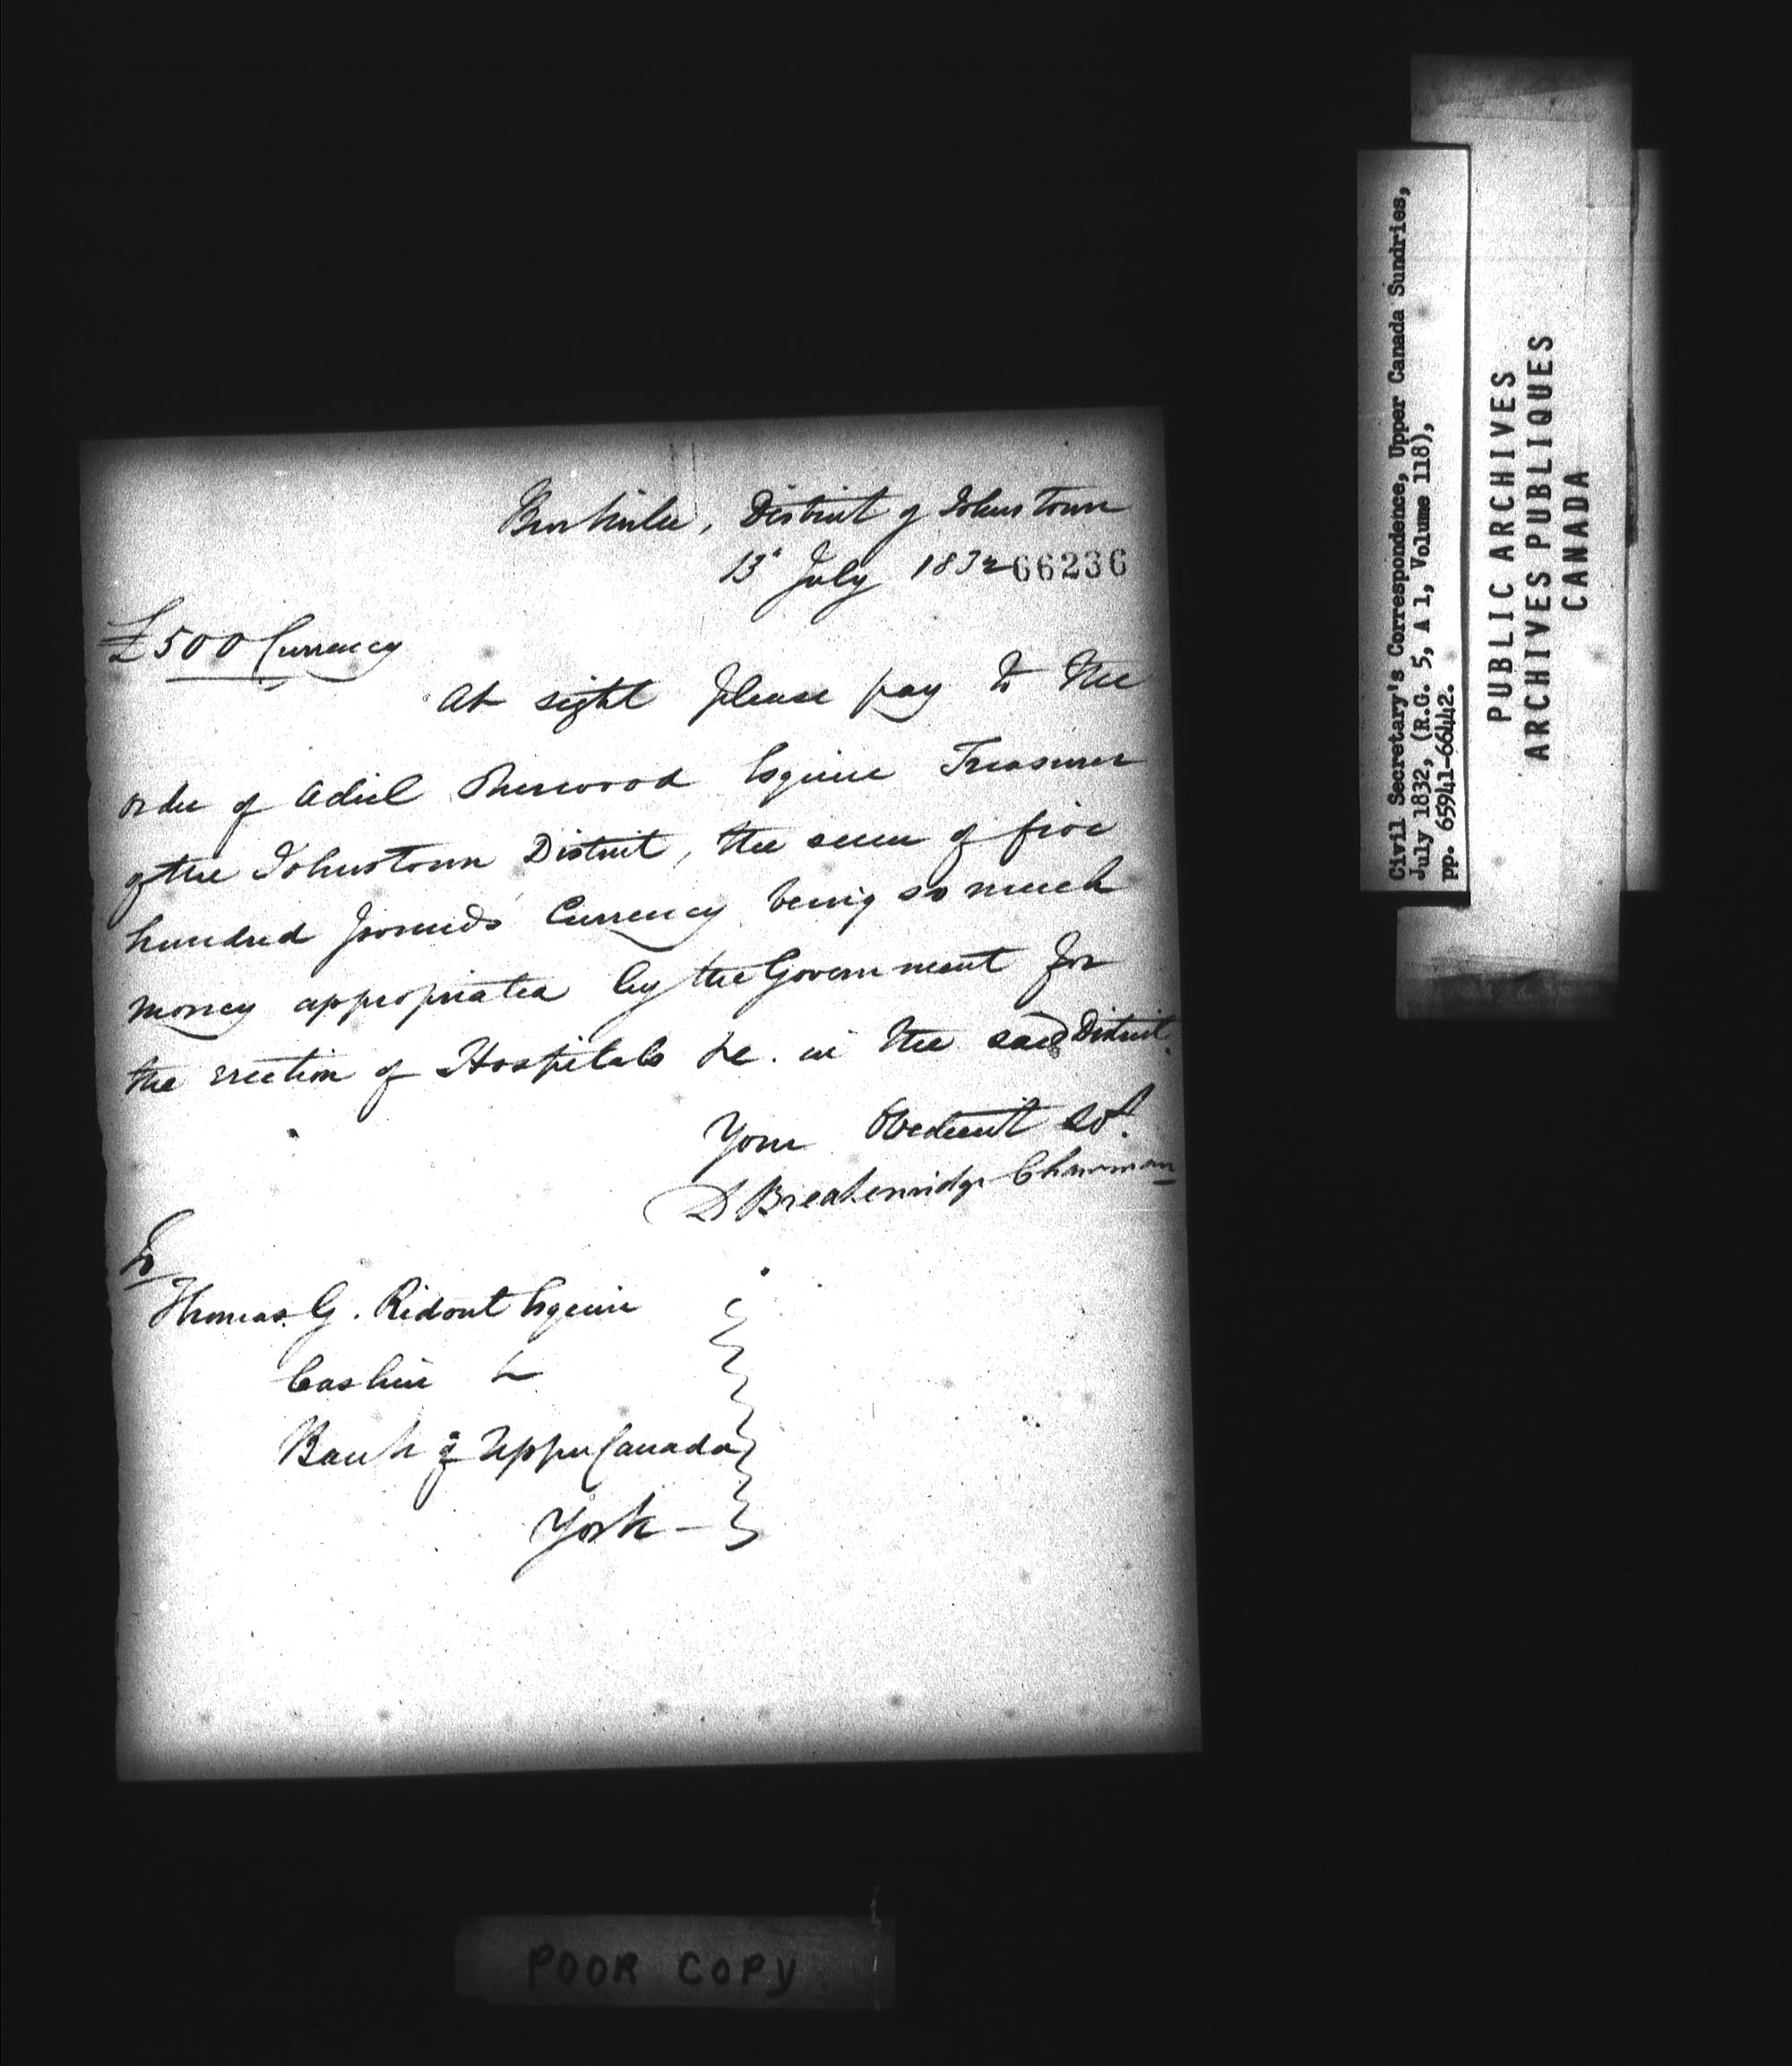 Brockville, District of Johnstown
13th July 1832 66236
£500 Currency
At sight please pay to the
order of Adiel Sherwood Esquire Treasurer
of the Johnstown District, the sum of five
hundred pounds Currency being so much
money appropriated by the Government for
the erection of Hospitals &c. in the said District.
Your Obedient St.
Breakenridge Chairman
To
Thomas G. Ridout Esquire
Cashier &c
Bank of Upper Canada
York —
Civil Secretary's Correspondence, Upper Canada Sundries,
July 1832, (R.G. 5, A 1, Volume 118),
pp. 65941-66442.
PUBLIC ARCHIVES
ARCHIVES PUBLIQUES
CANADA
POOR COPY